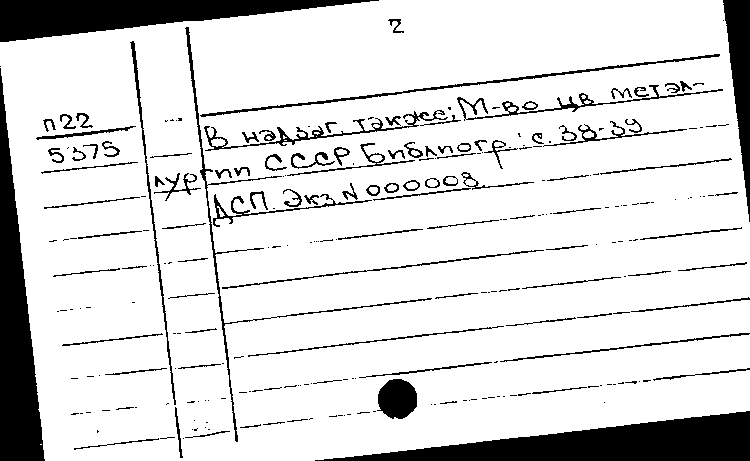 2
п22
5375
В надзаг. также: М-во цв метал-
лургии СССР. Библиогр.: с. 38-39
ДСП. Экз. N 000008.